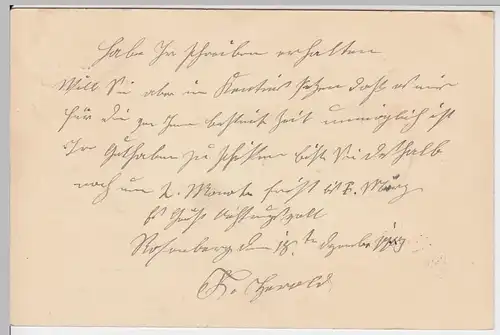 Habe Ihr schreiben erhalten
Will Sie aber in Kentnis setzen daß es mir
für die von Ihnen bestimt Zeit unmöglich ist
Ihr Guthaben zu schicken bitte Sie deshalb
noch um 2. Monate frist bis 1. März
Es Grüßt Achtungsvoll
Rosenberg den 18.ten Dezember
Fr. Herold